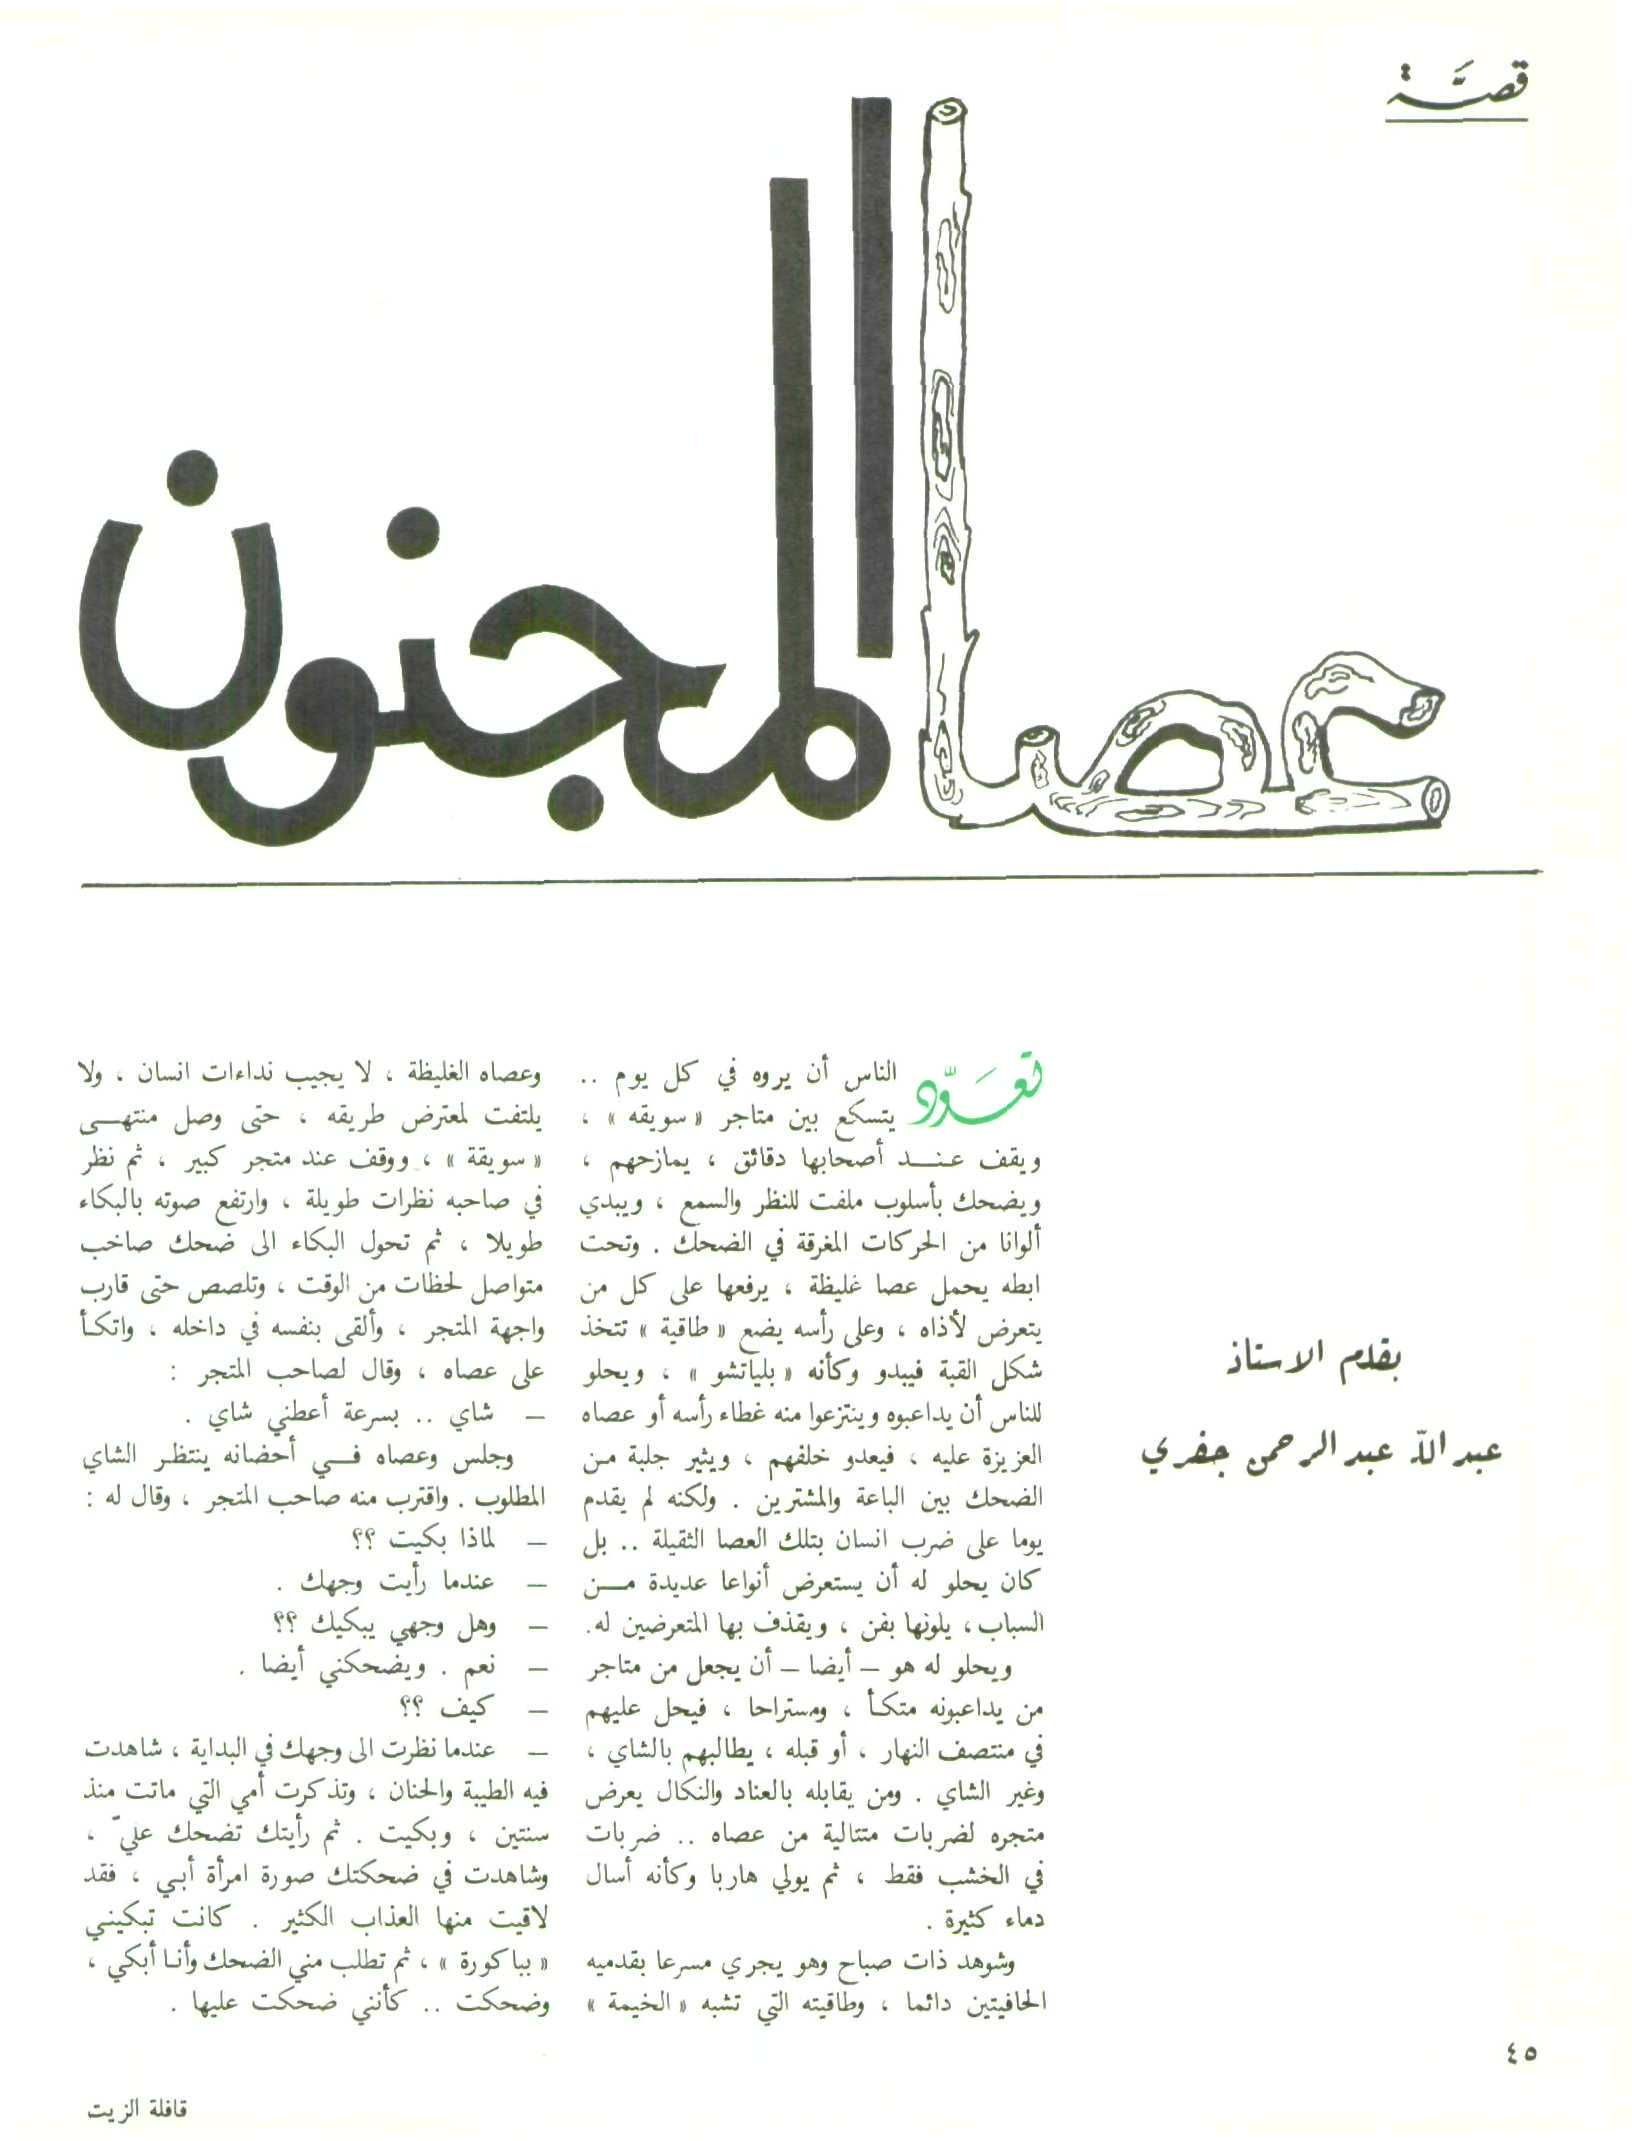 قصَّة
عصا المجنون
بقلم الاستاذ
عبد اللّه عبد الرحمن جفري
تعَوَّد الناس أن يروه في كل يوم ..
يتسكع بين متاجر « سويقه » ،
ويقف عنـــد أصحابها دقائق ، يمازحهم ،
ويضحك بأسلوب ملفت للنظر والسمع ، ويبدي
ألوانا من الحركات المغرقة في الضحك . وتحت
ابطه يحمل عصا غليظة ، يرفعها على كل من
يتعرض لأذاه ، وعلى رأسه يضع « طاقية » تتخذ
شكل القبة فيبدو وكأنه « بلياتشو » ، ويحلو
للناس أن يداعبوه وينتزعوا منه غطاء رأسه أو عصاه
العزيزة عليه ، فيعدو خلفهم ، ويثير جلبة مـن
الضحك بين الباعة والمشترين . ولكنه لم يقدم
يوما على ضرب انسان بتلك العصا الثقيلة .. بل
كان يحلو له أن يستعرض أنواعا عديدة مـــن
السباب ، يلونها بفن ، ويقذف بها المتعرضين له.
ويحلو له هو – أيضا – أن يجعل من متاجر
من يداعبونه متكـأ ، ومستراحا ، فيحل عليهم
في منتصف النهار ، أو قبله ، يطالبهم بالشاي ،
وغير الشاي . ومن يقابله بالعناد والنكال يعرض
متجره لضربات متتالية من عصاه .. ضربات
في الخشب فقط ، ثم يولي هاربا وكأنه أسال
دماء كثيرة .
وشوهد ذات صباح وهو يجري مسرعا بقدميه
الحافيتين دائما ، وطاقيته التي تشبه « الخيمة »
وعصاه الغليظة ، لا يجيب نداءات انسان ، ولا
يلتفت لمعترض طريقه ، حتى وصل منتهـــى
« سويقة » ، ووقف عند متجر كبير ، ثم نظر
في صاحبه نظرات طويلة ، وارتفع صوته بالبكاء
طويلا ، ثم تحول البكاء الى ضحك صاخب
متواصل لحظات من الوقت ، وتلصص حتى قارب
واجهة المتجر ، وألقى بنفسه في داخله ، واتكـأ
على عصاه ، وقال لصاحب المتجر :
– شاي .. بسرعة أعطني شاي .
وجلس وعصاه فـــي أحضانه ينتظـر الشاي
المطلوب . واقترب منه صاحب المتجر ، وقال له :
– لماذا بكيت ؟؟
– عندما رأيت وجهك .
– وهل وجهي يبكيك ؟؟
– نعم . ويضحكني أيضا .
– كيف ؟؟
– عندما نظرت الى وجهك في البداية ، شاهدت
فيه الطيبة والحنان ، وتذكرت أمي التي ماتت منذ
سنتين ، وبكيت . ثم رأيتك تضحك عليّ ،
وشاهدت في ضحكتك صورة امرأة أبـي ، فقد
لاقيت منها العذاب الكثير . كانت تبكينـي
« بباكورة » ، ثم تطلب مني الضحك وأنـا أبكي ،
وضحكت .. كأنني ضحكت عليها .
٤٥
قافلة الزيت